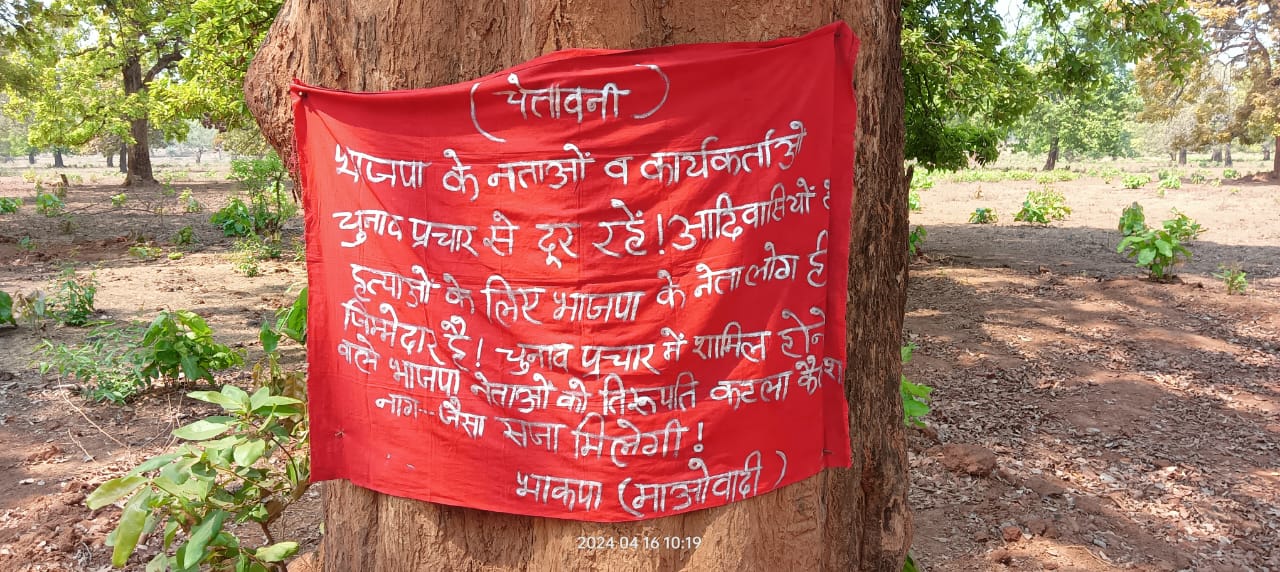 (चेतावनी)
भाजपा के नेताओं व कार्यकर्ताओ
चुनाव प्रचार से दूर रहें! आदिवासियों
हत्याओं के लिए भाजपा के नेता लोग ही
जिम्मेदार है! चुनाव प्रचार में शामिल होने
वाले भाजपा नेताओ को तिरूपति कटला कैलाश
नाग-- जैसा सजा मिलेगी!
भाकपा (माओवादी)
2024 04 16 10:19